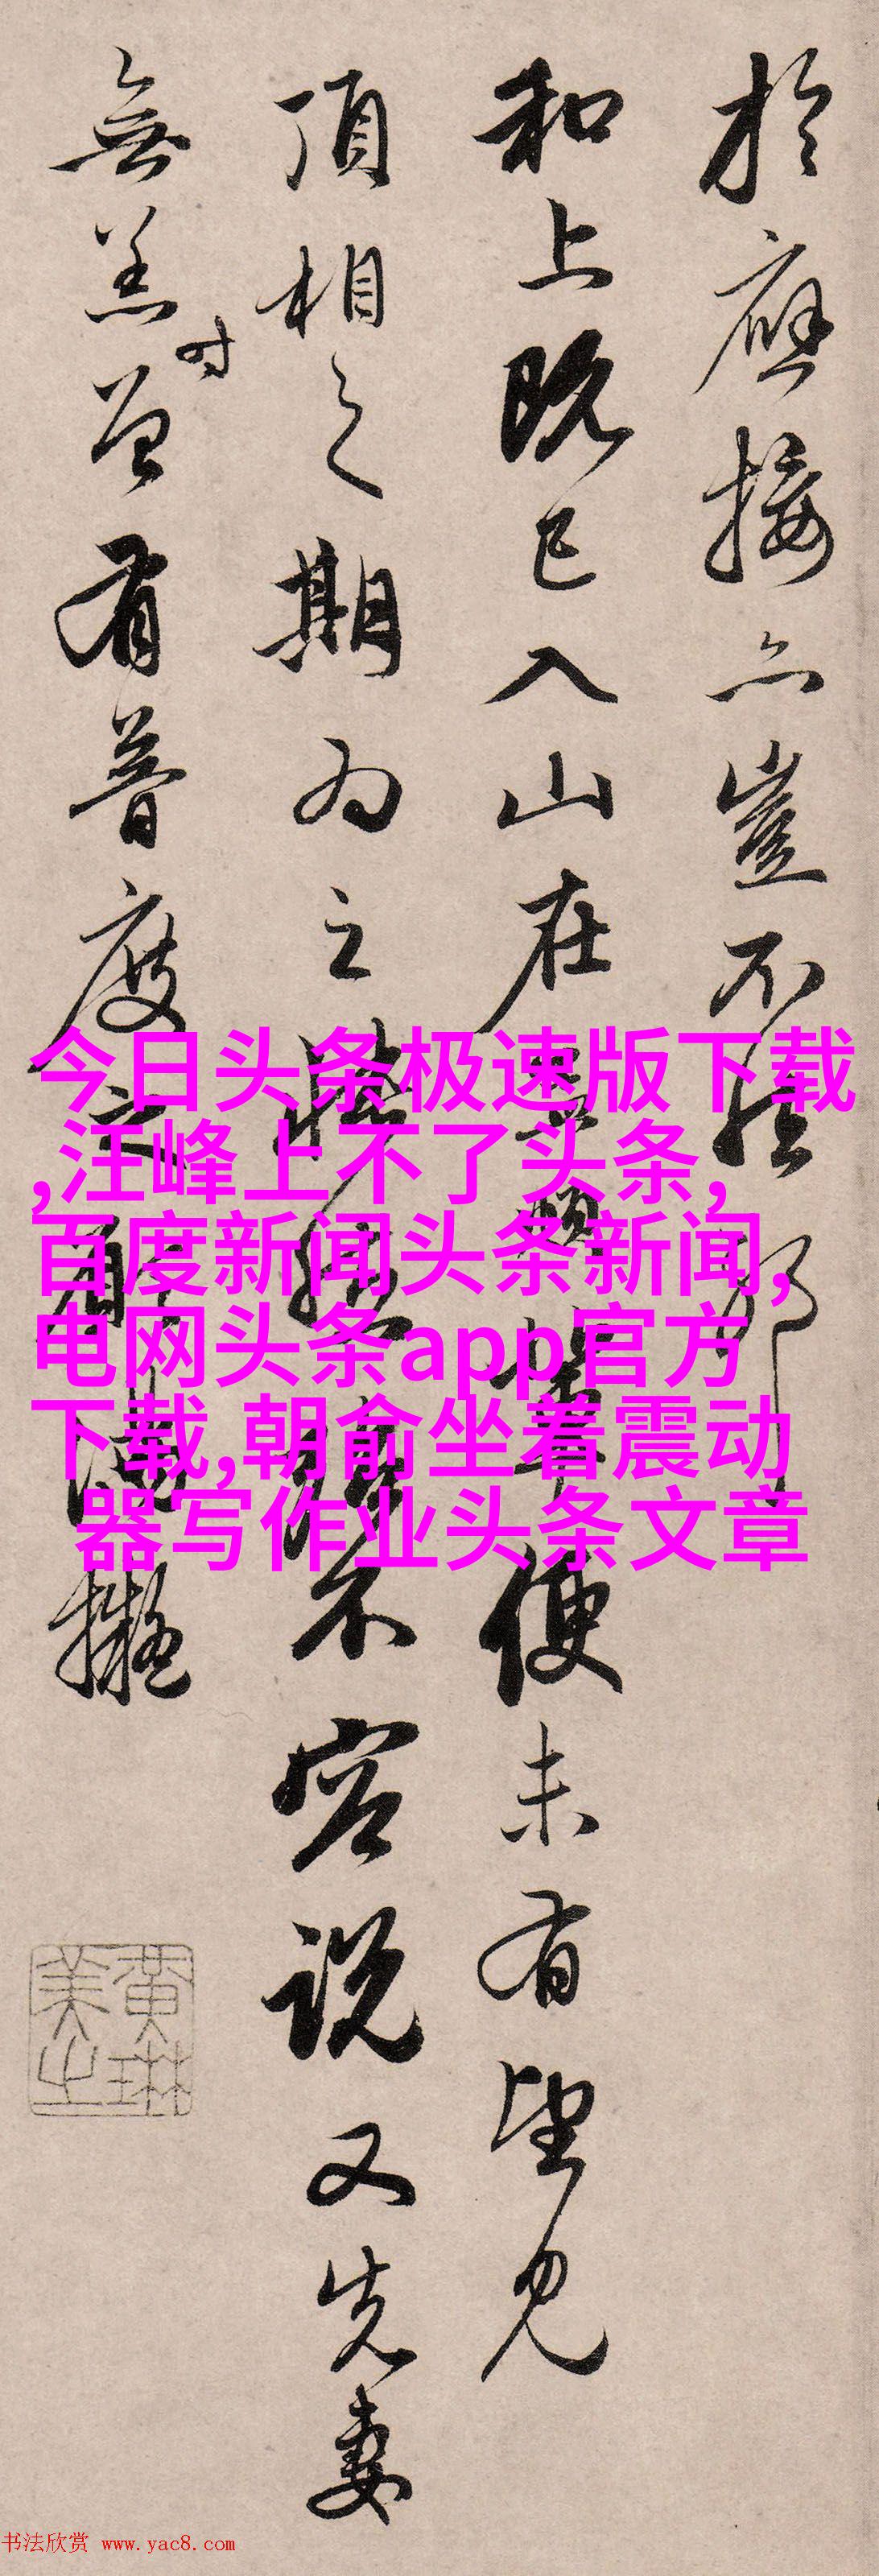 於應接亦豈不
和上既已入山在
便未有望見
頂相之期為之
不容說又先妻
無恙时曾有普度之
擬
今日头条极速版下载
,汪峰上不了头条,
百度新闻头条新闻,
电网头条app官方
下载,朝俞坐着震动
器写作业头条文章
黄琳
美之
书法欣赏 www.yac8.com